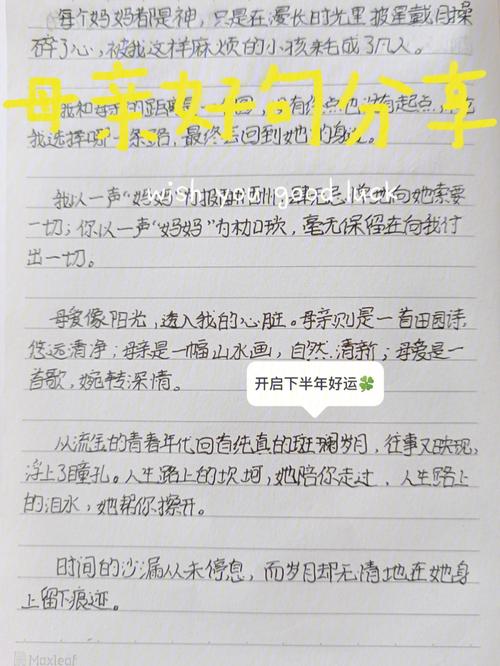 每个妈妈都是神，只是在漫长时光里披星戴月操
碎了心，被我这样麻烦的小孩耗成了凡人。
母亲好句分享
我和母亲的距离是一个圆，没有终点也没有起点，
我选择哪一条路，最终会回到她的身边。
wish you good luck
我以一声“妈妈”为报酬，肆无忌惮地向她索要
一切；你以一声“妈妈”为枷锁，毫无保留在向我付
出一切。
母爱像阳光，透入我的心脏。母亲则是一首田园诗，
悠远清净；母亲是一幅山水画，自然清新；母爱是一
首歌，婉转深情。
开启下半年好运🍀
从流金的青春年代回首纯真的斑斓岁月，往事又映现，
浮上了瞳孔。人生路上的坎坷，她陪你走过，人生路上
的泪水，她帮你擦干。
时间的沙漏从未停息，而岁月却无情地在她身
上留下痕迹。
Maxleaf